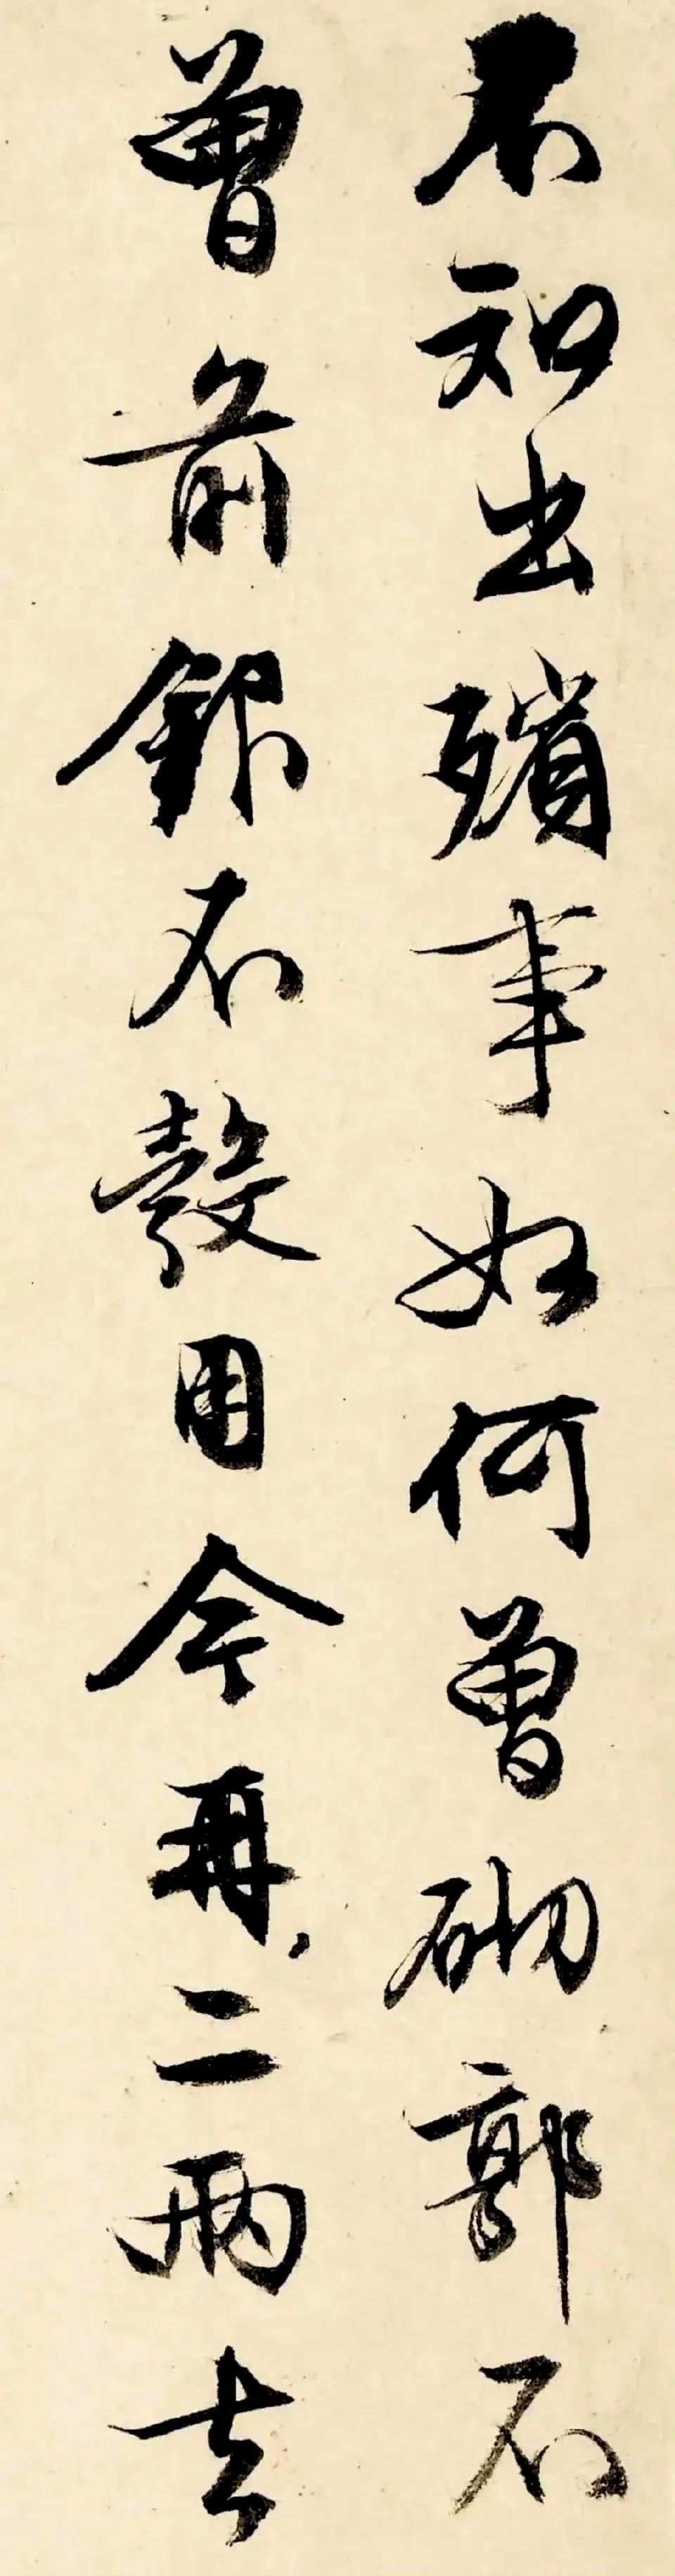 不知出殯事如何曾砌郭不
曾前銀不彀用今再二兩去